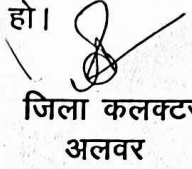 हो।
जिला कलक्टर
अलवर